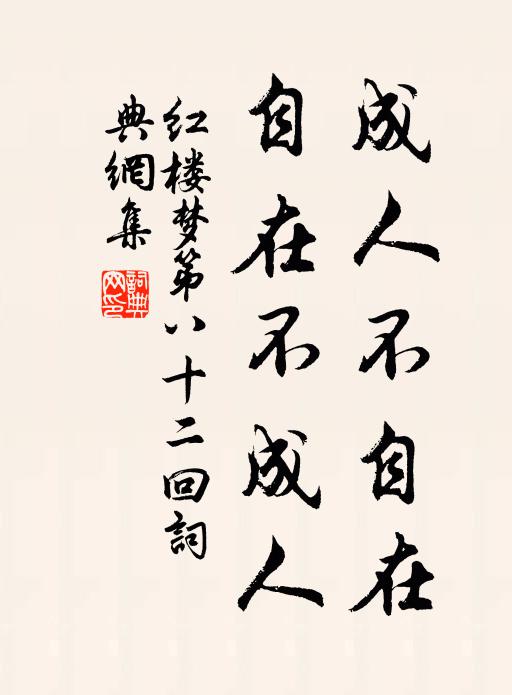 成人不自在
自在不成人
红楼梦第八十二回詞
典網集
詞典
网印